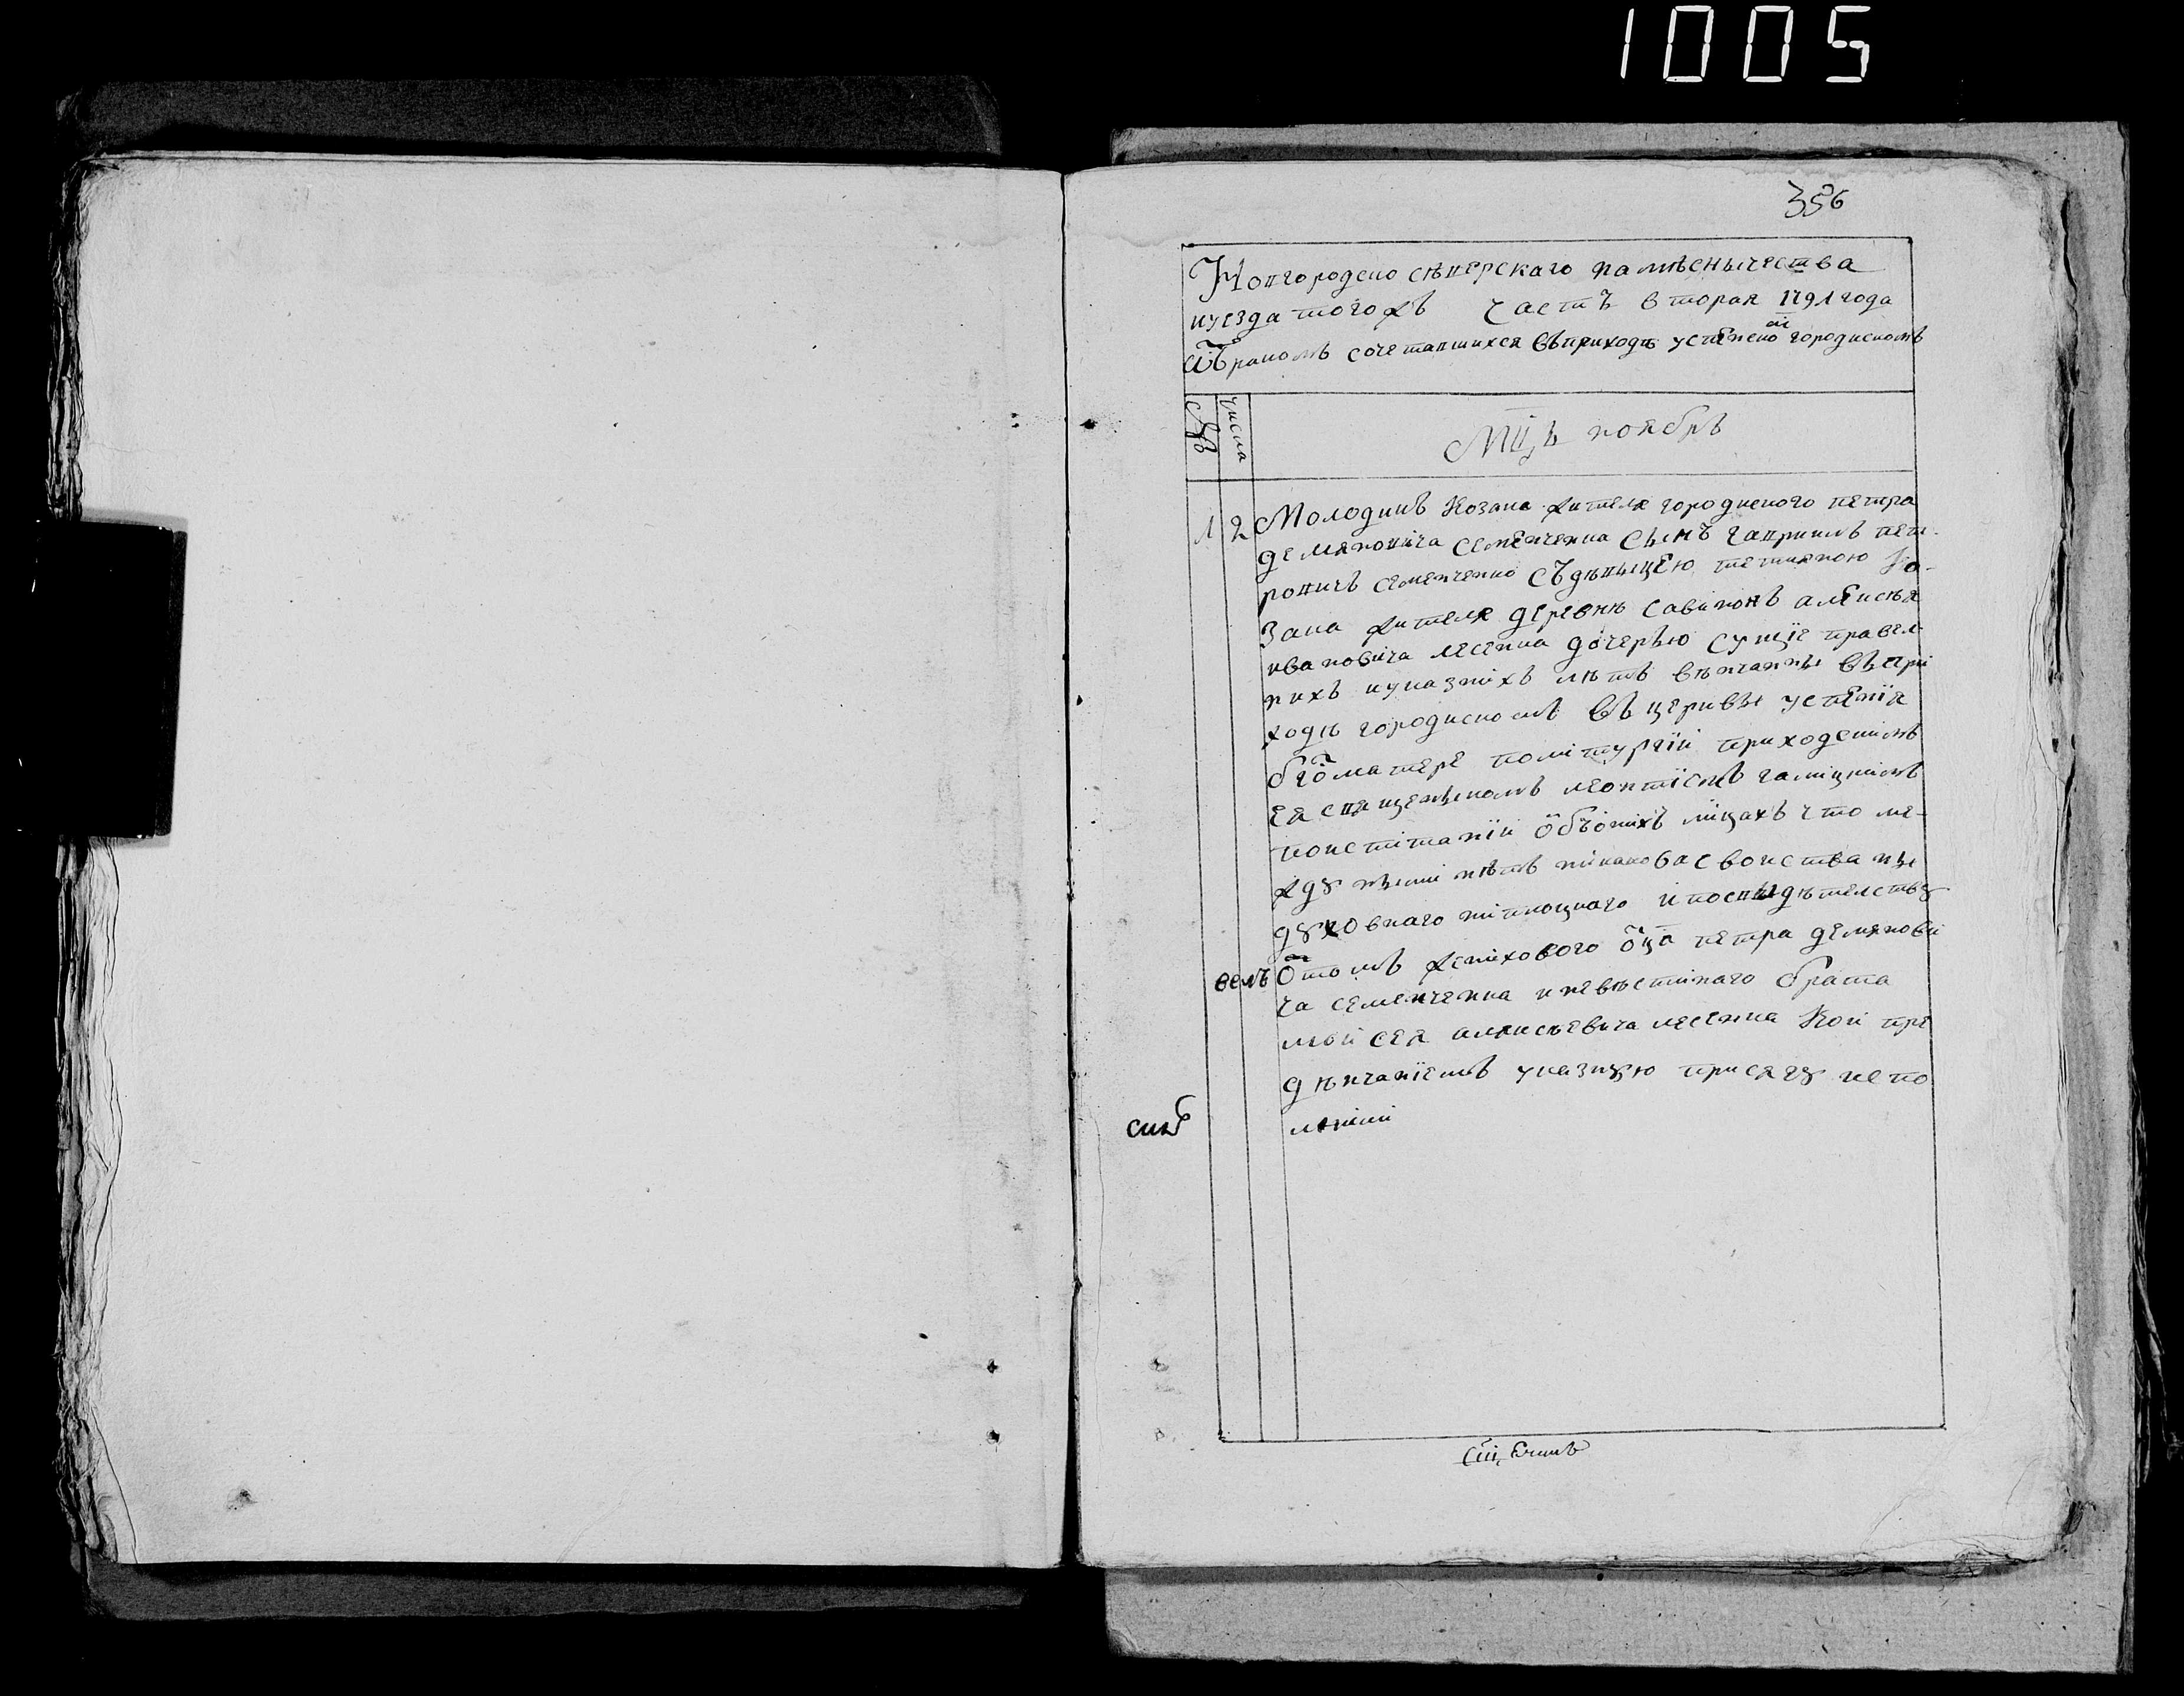 1005
356
Новгородско сѣверскаго намѣсничества
и уезда тогожъ частъ вторая 1791 года
ѿ бракомъ сочетавшихся въ приходѣ успенско м городискомъ
№
числа
Мцъ ноябръ
1 2 Молодикъ козака жителя городиского петра
демяновича семенченка сынъ гавриилъ пет-
ровичъ семенченко съ дѣвицею тетияною ко-
зака жителя деревнѣ савинокъ алексѣя
ивановича лесенка дочерью сущіе правел-
нихъ и указнихъ лѣтъ вѣнчанны въ при
ходѣ городискомъ въ церквы успенія
бгоматере по літургіи приходскимъ
ея священникомъ леонтіемъ галицкимъ
по испитаніи обѣоихъ лицахъ что ме-
жду ными нѣтъ никакова свойства ны
духовнаго ни плоцкаго и по свыдѣтелству
велъ о томъ женихового оца петра демянови
ча семенченка и невѣстинаго брата
мойсея алексѣевича лесенка кои пре
д вѣнчаніемъ указную присягу испо
лнили
синъ
сщенникъ